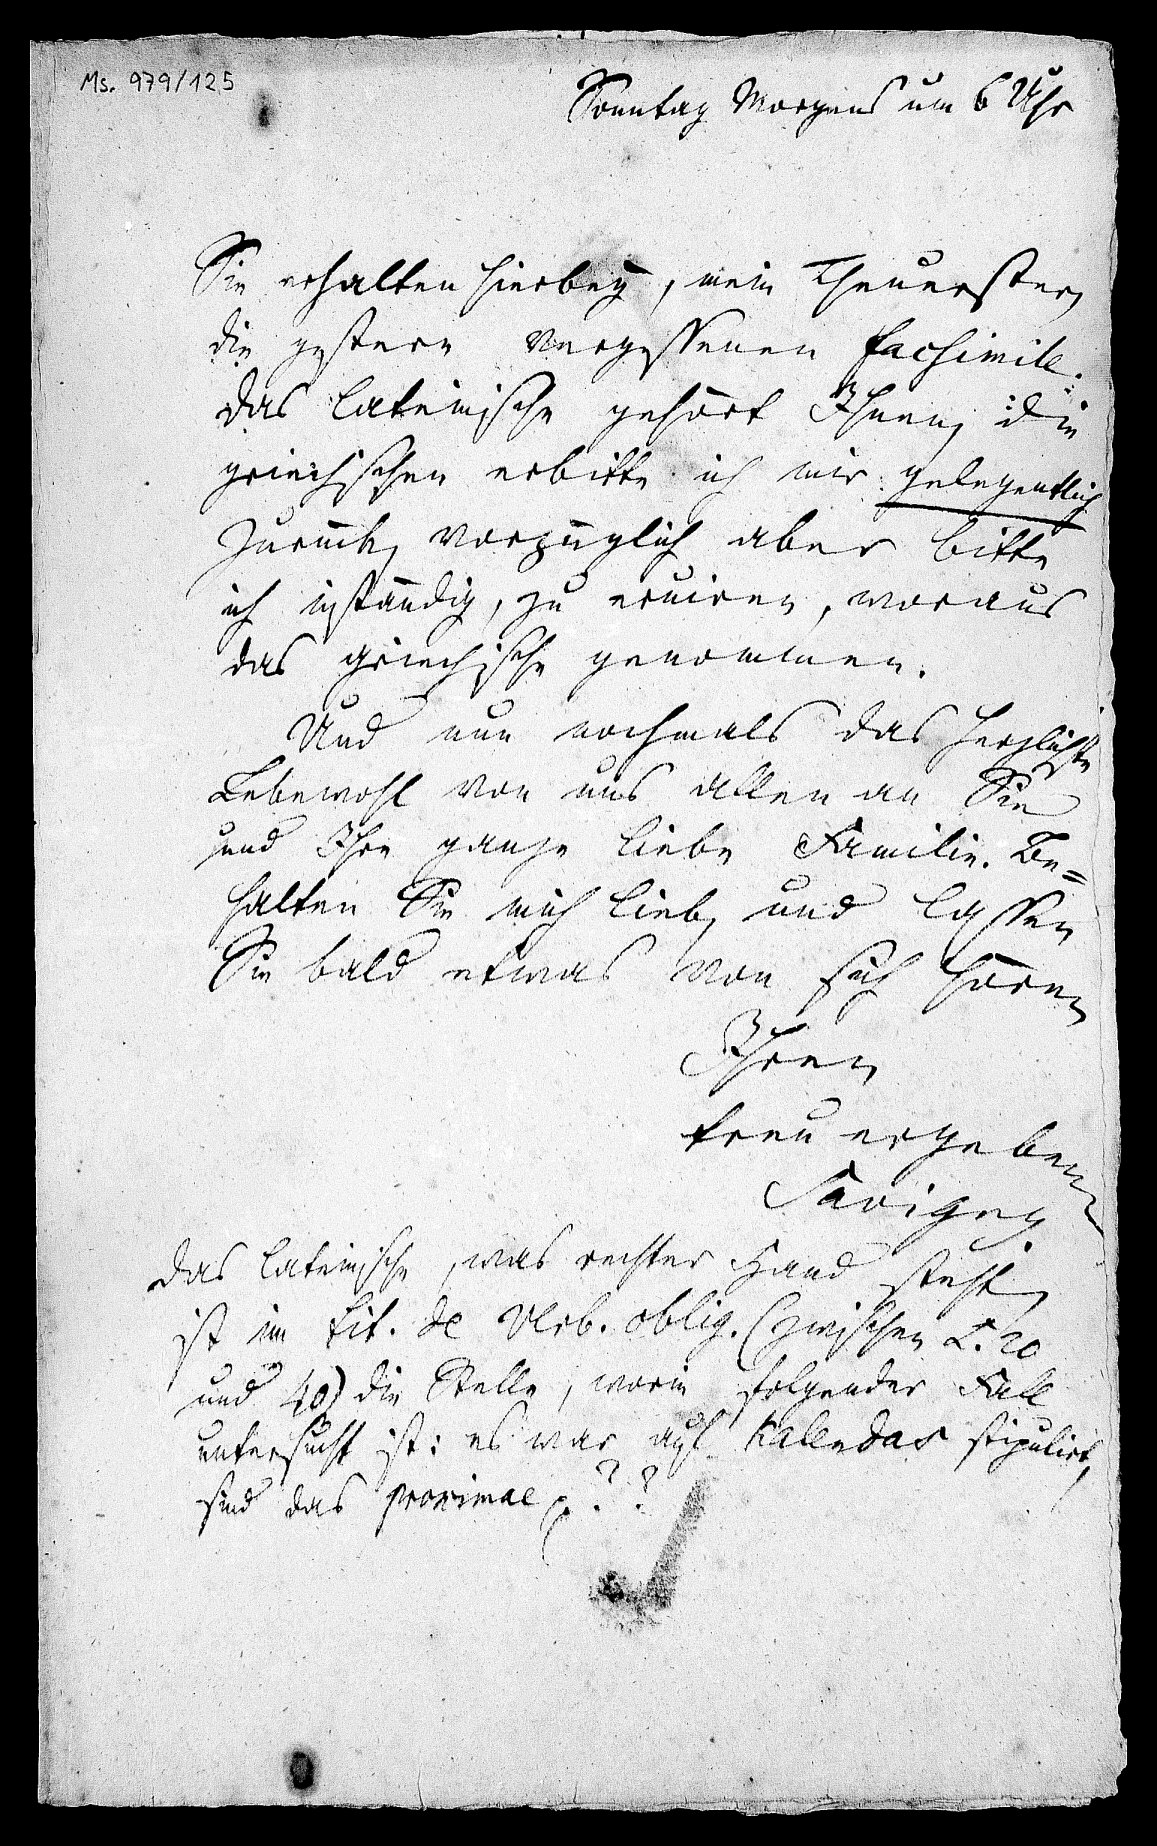 Ms. 979/125
Sonntag Morgens um 6 Uhr
Sie erhalten hierbey, mein Theuerster,
die gestern vergessenen facsimile.
das lateinische gehört Ihnen, die
griechischen erbitte ich mir gelegentlich
zurück, vorzüglich aber bitte
ich inständig, zu eruiren, woraus
das griechische genommen.
Und nun nochmals das herzlichste
Lebewohl von uns allen an Sie
und Ihre ganze liebe Familie. Be=
halten Sie mich lieb, und lassen
Sie bald etwas von sich hören
Ihren
treu ergebenen
Savigny.
das lateinische, was rechter Hand steht,
ist im tit. de Verb. oblig. (zwischen L. 20
und 40) die Stelle, worin folgender Fall
untersucht ist: es war auf Kalendas stipulirt,
sind das proximae ? ?